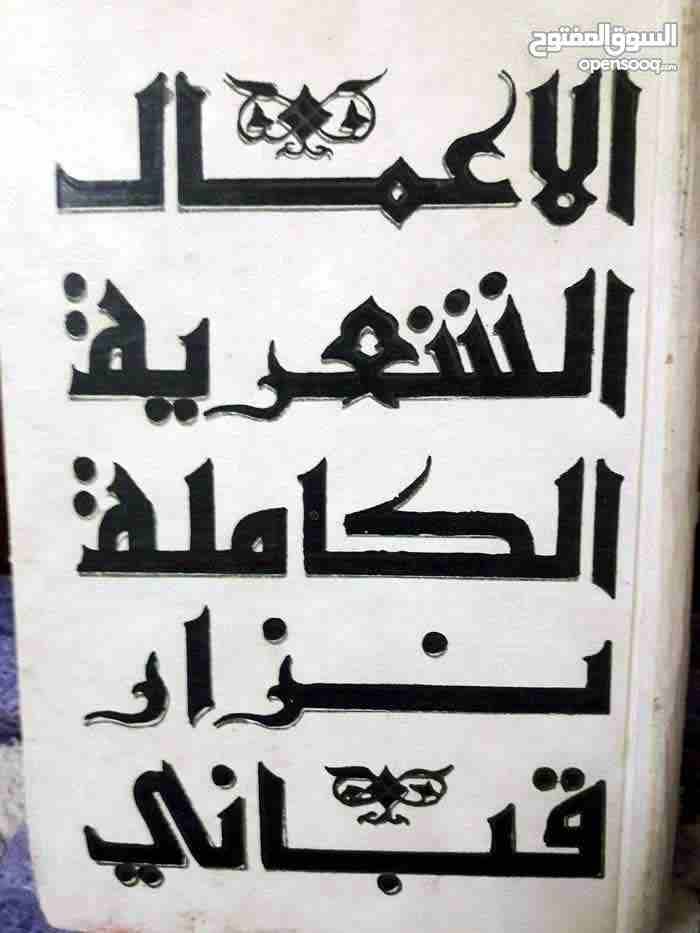 السوق المفتوح
opensooq.com
الاعمال
الشعرية
الكاملة
نزار
قباني